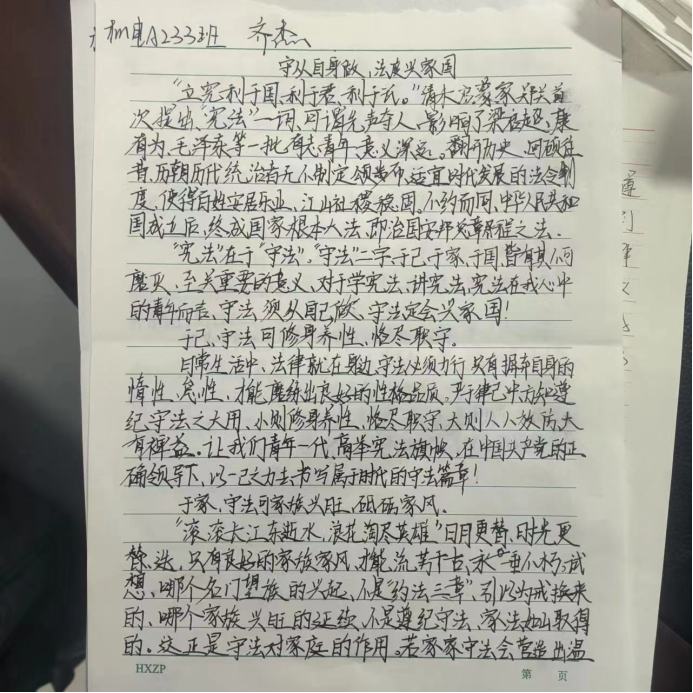 机电A233班 齐杰
守从自身做,法度兴家国
“立宪利于国,利于君,利于民。”清末启蒙家郑关首
次提出“宪法”一词,可谓先声夺人,影响了梁启超、康
有为、毛泽东等一批有志青年,意义深远。翻开历史,回顾往
昔,历朝历代统治者无不制定颁发布适宜时代发展的法令制
度,使得百姓安居乐业,江山社稷稳固。不约而同,中华人民共和
国成立后,终成国家根本大法,即治国安邦类章程之法.
“宪法”在于“守法”,“守法”二字,于己,于家,于国,皆有其不可
磨灭、至关重要的意义,对于学宪法,讲宪法,宪法在我心中
的青年而言,守法须从自己做,守法定会兴家国!
于己,守法可修身养性,恪尽职守。
日常生活中,法律就在身边,守法必须力行,只有摒弃自身的
惰性、怠性,才能磨练出良好的性格品质。严于律己中方知遵
纪守法之大用,小则修身养性,恪尽职守,大则人人效仿,大
有裨益。让我们青年一代,高举宪法旗帜,在中国共产党的正
确领导下,以一己之力去书写属于时代的守法篇章!
于家,守法可家族兴旺,砥砺家风。
“滚滚长江东逝水,浪花淘尽英雄”日月更替,时光更
替迭,只有良好的家族家风,才能流芳千古,永垂不朽,试
想,哪个名门望族的兴起,不是“约法三章”,引以为戒换来
的,哪个家族兴旺的延续,不是遵纪守法、家法如山取得
的。这正是守法对家庭的作用。若家家守法会营造出温
HXZP
第 页